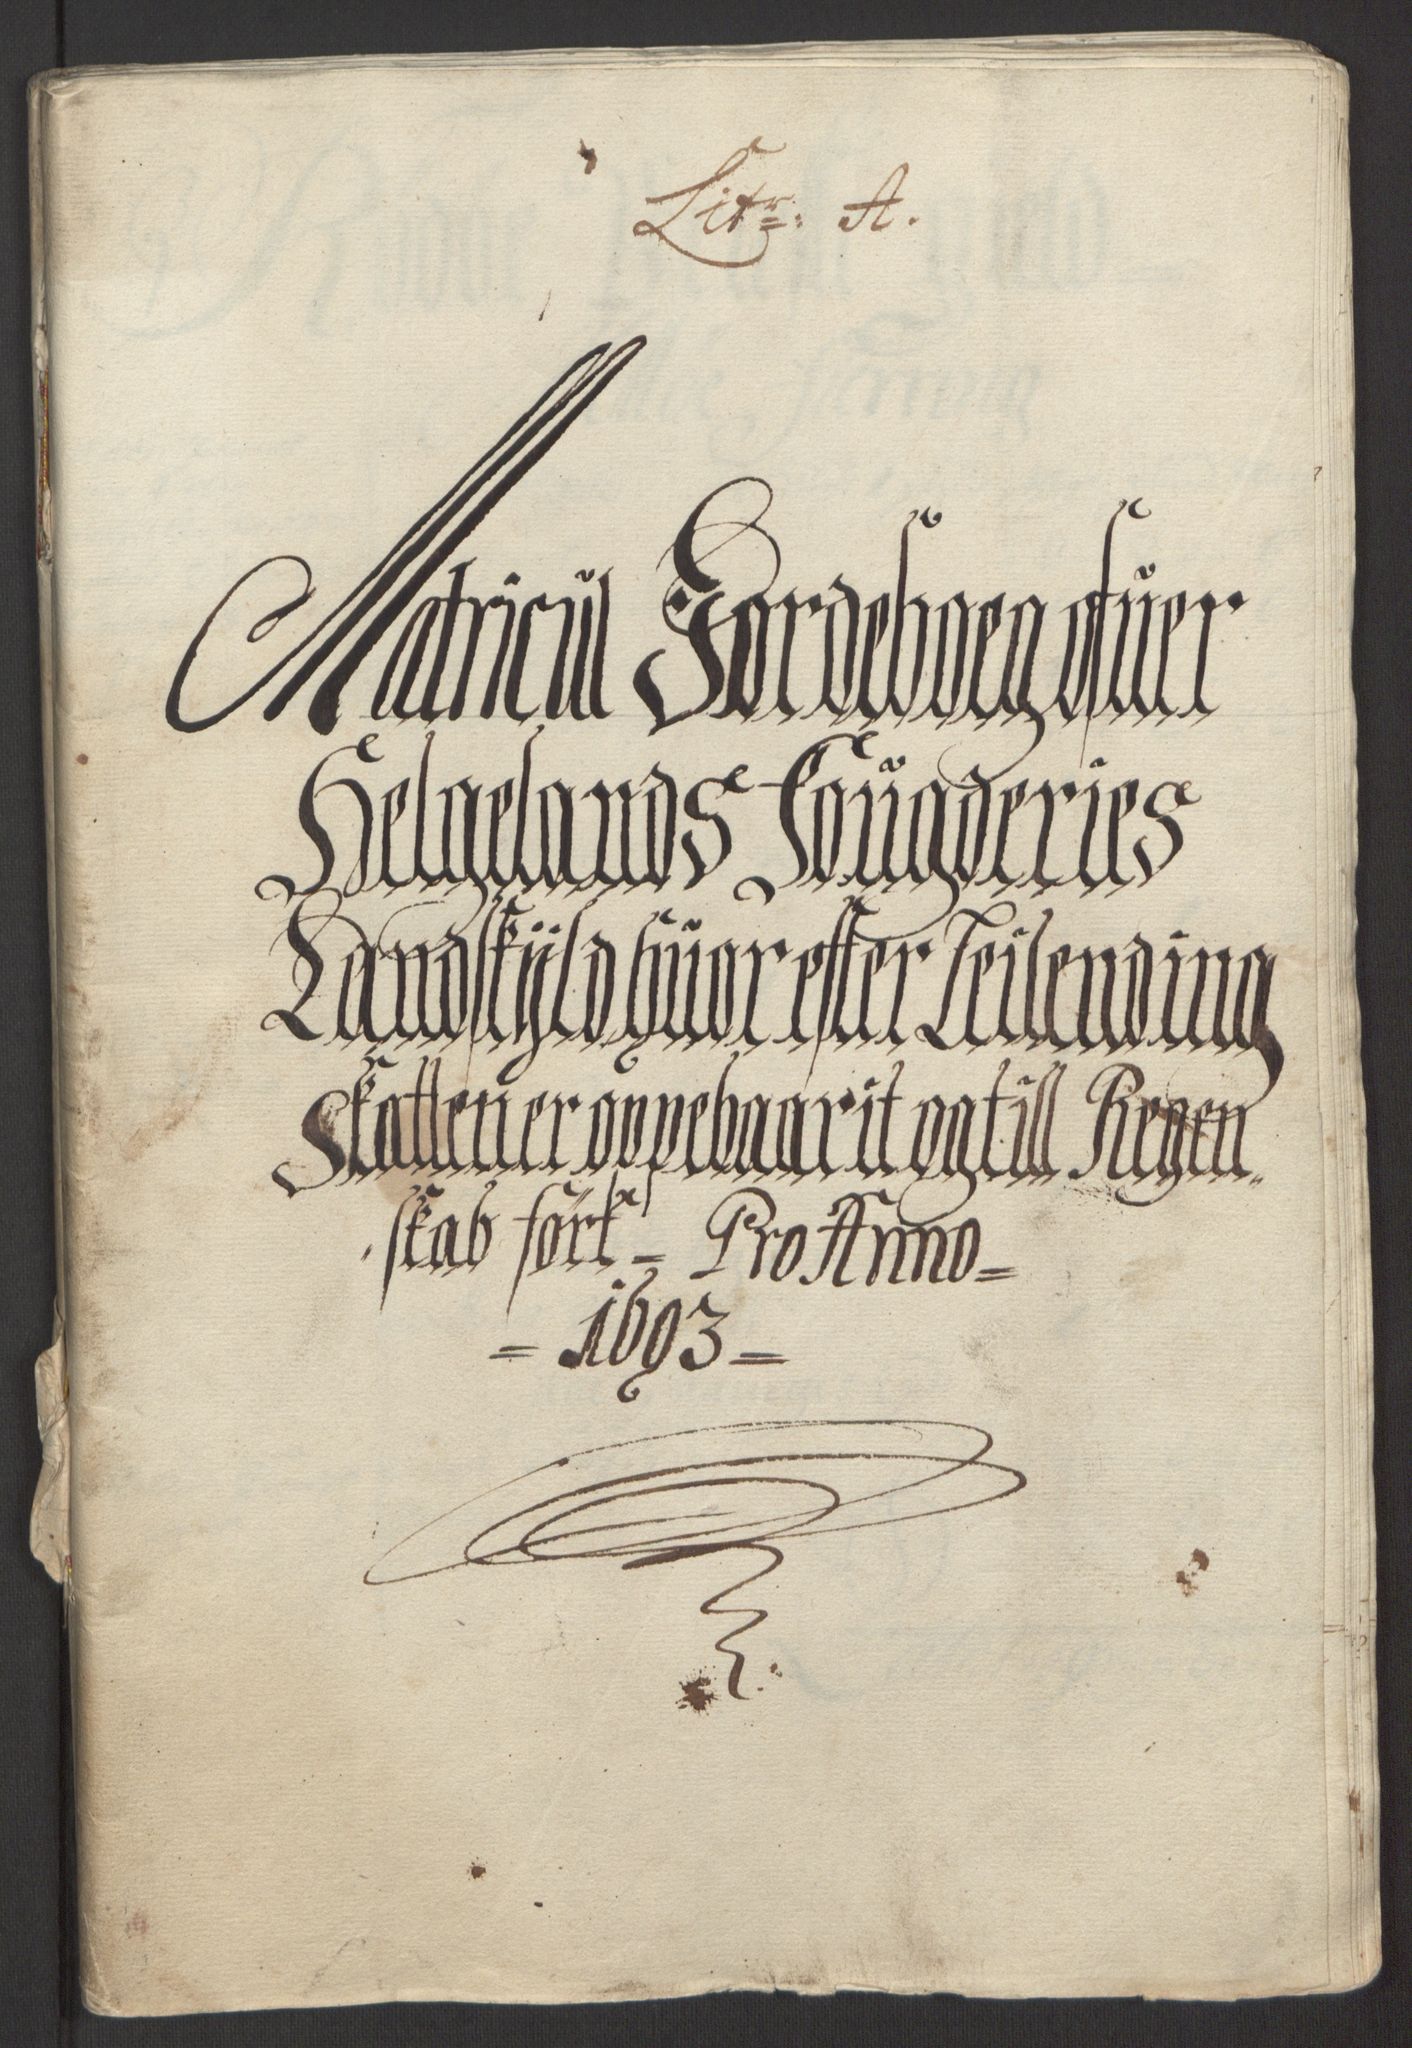 Litr: A.
Matricul Jordeboeg ofuer
Helgelands Fougderies
Landskÿld huor effter Leilending
Skatten er oppebaarit og till Regen„
skab fört = Pro Anno =
= 1693 =